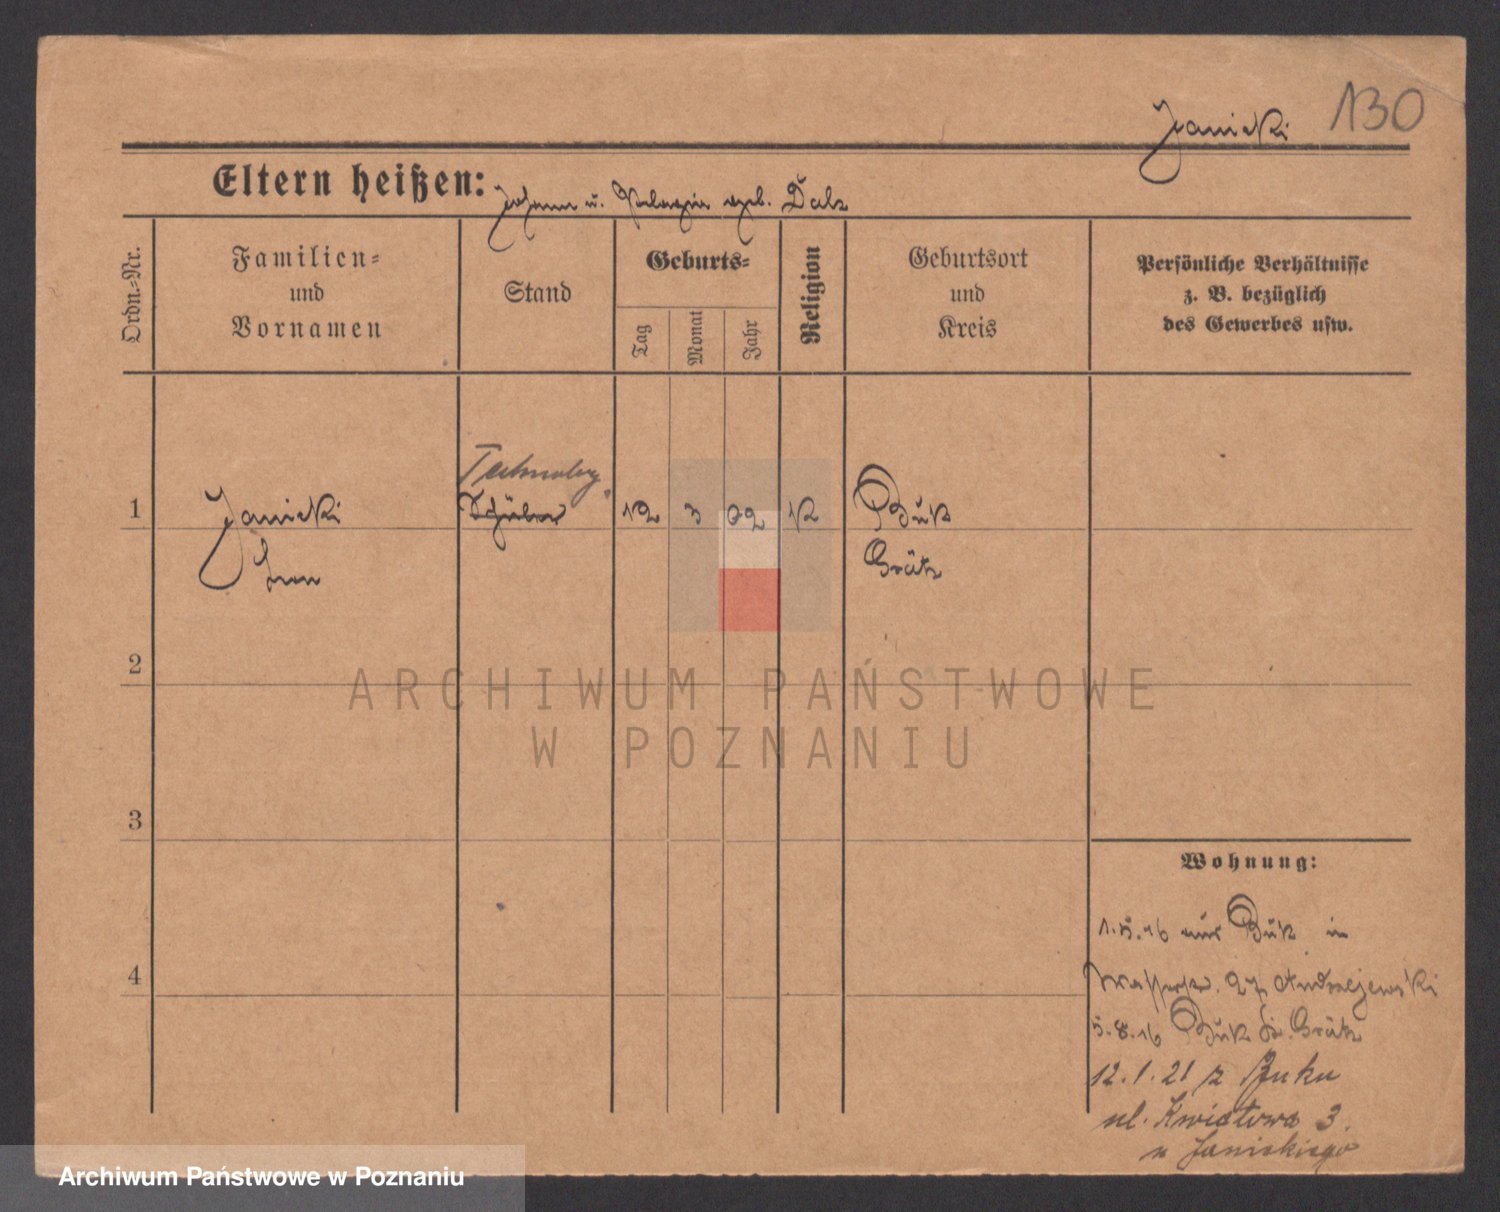 Janicki 130
Eltern heißen: Johann u. Pelagia geb. Dalz
Ordn.-Nr.
Familien-
und
Vornamen
Stand
Geburts-
Tag
Monat
Jahr
Religion
Geburtsort
und
Kreis
Persönliche Verhältnisse
z. B. bezüglich
des Gewerbes usw.
Technolog.
1 Janicki Schüler 12 3 02 K Buk
Grätz
2
ARCHIWUM PAŃSTWOWE
W POZNANIU
3
Wohnung:
1.5.16 aus Buk in
4
Wasserstr. 27 Andrzejewski
5.8.16 Buk Kr. Grätz
12.1.21 z Buku
ul. Kwiatowa 3.
u Janickiego
Archiwum Państwowe w Poznaniu